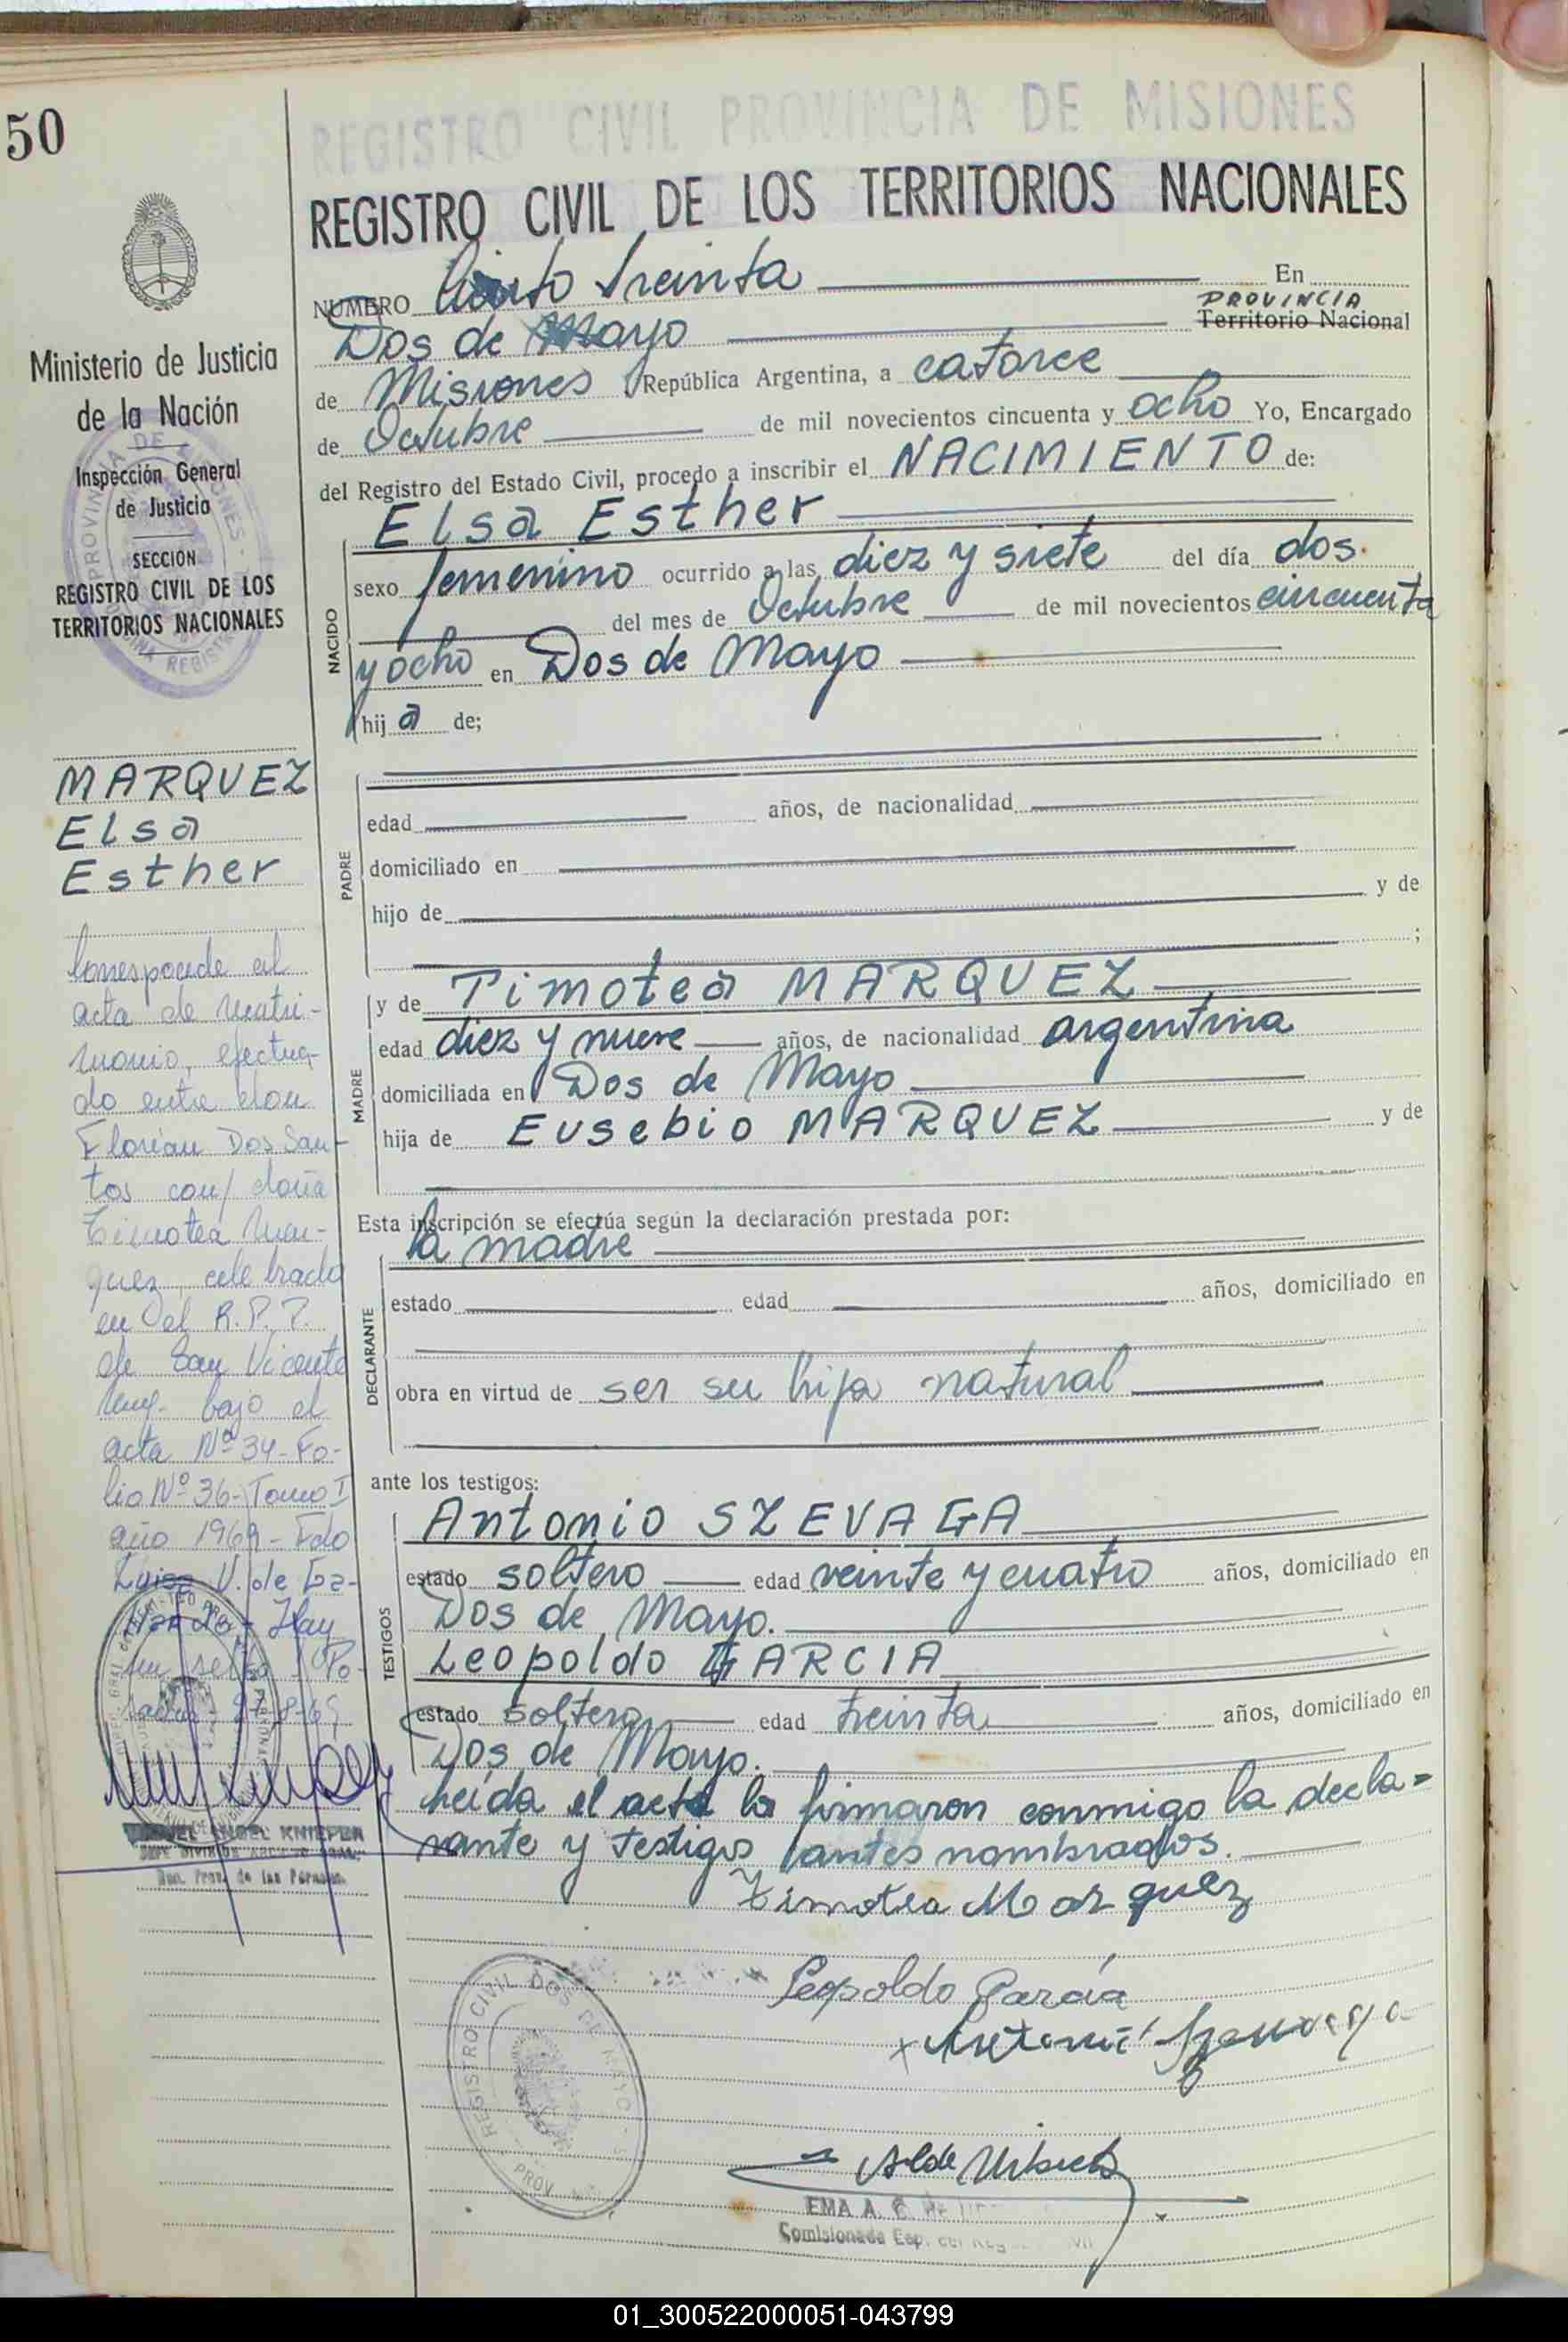 50
REGISTRO CIVIL PROVINCIA DE MISIONES
REGISTRO CIVIL DE LOS TERRITORIOS NACIONALES
NUMERO Ciento Treinta En
Dos de Mayo PROVINCIA
Territorio Nacional
de Misiones República Argentina, a catorce
de Octubre de mil novecientos cincuenta y ocho Yo, Encargado
del Registro del Estado Civil, procedo a inscribir el NACIMIENTO de:
Elsa Esther
NACIDO
sexo femenino ocurrido a las diez y siete del día dos
del mes de Octubre de mil novecientos cincuenta
y ocho en Dos de Mayo
hija de;
PADRE
edad años, de nacionalidad
domiciliado en
hijo de y de
;
MADRE
y de Timotea MARQUEZ
edad diez y nueve años, de nacionalidad argentina
domiciliada en Dos de Mayo
hija de Eusebio MARQUEZ y de
Esta inscripción se efectúa según la declaración prestada por:
DECLARANTE
la madre
estado edad años, domiciliado en
obra en virtud de ser su hija natural
ante los testigos:
TESTIGOS
Antonio SZEVAGA
estado soltero edad veinte y cuatro años, domiciliado en
Dos de Mayo.
Leopoldo GARCIA
estado soltero edad treinta años, domiciliado en
Dos de Mayo.
Leída el acta la firmaron conmigo la decla=
rante y testigos antes nombrados.
Timotea Marquez
Leopoldo García
REGISTRO CIVIL DOS DE MAYO
PROV.
EMA A.
Comisionada Esp. del Reg
Ministerio de Justicia
de la Nación
Inspección General
de Justicia
SECCION
REGISTRO CIVIL DE LOS
TERRITORIOS NACIONALES
MARQUEZ
Elsa
Esther
Correspocede al
acta de matri-
monio, efectua-
do entre don
Florián Dos San-
tos con/ doña
Timotea Mar-
quez, celebrado
en el R.P.P.
de San Vicente
bajo el
acta Nº 34- Fo-
lio Nº 36- Tomo I
año 1969 - Fdo
Luisa V. de
Hay
un sello Po-
sadas- 27-8-69
ANGEL KNIEPER
JEFE DIVISION
Prov. de las Personas
01_300522000051-043799